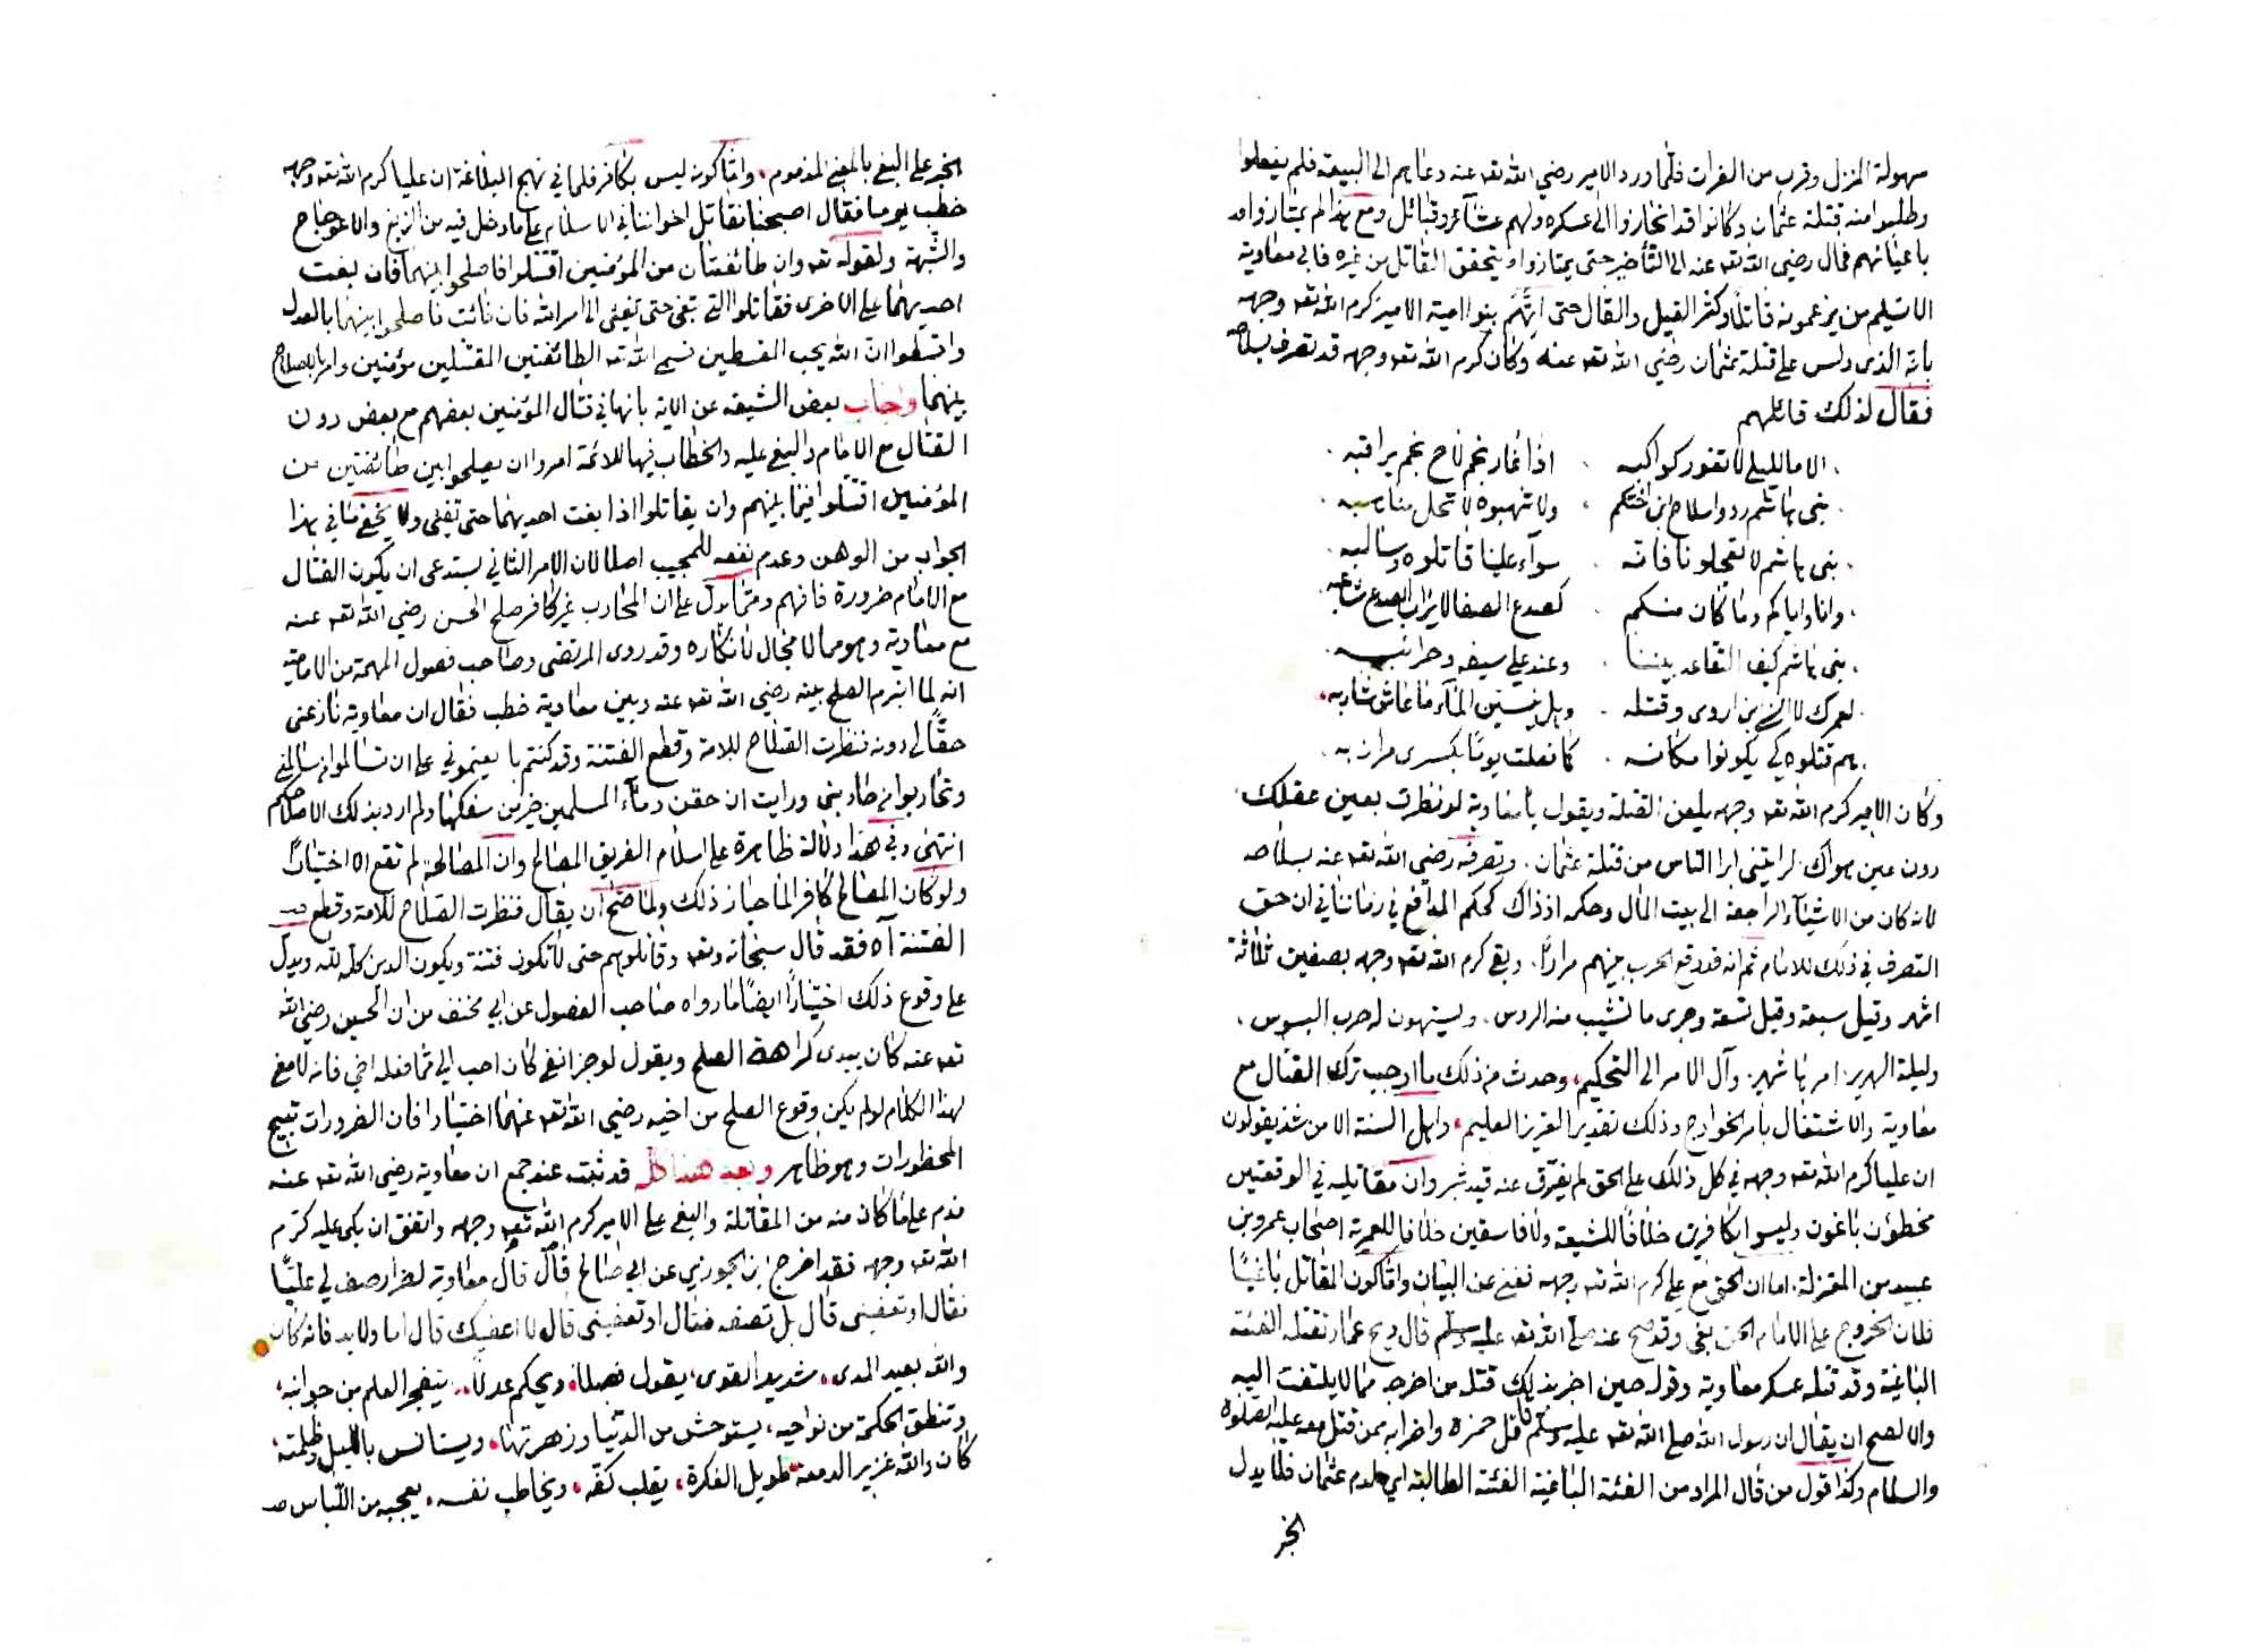 سهولة المنزل وقرب من الفرات فلما ورد الامير رضي الله تعه عنه دعاهم الى البيعة فلم يفعلوا
وطلبوا منه قتلة عثمان وكانوا قد انحازوا الى عسكره ولهم عشآئر وقبائل ومع هذا لم يمتازوا
باعيانهم فمال رضي الله تعه عنه الى التأخير حتى يمتازوا او يتحقق القاتل من غيره فابى معاوية
الا تسليم من يزعمونه قاتلا وكثر القيل والقال حتى اتهم بنوا امية الامير كرم الله تعه وجهه
بانه الذى دلس على قتلة عثمان رضي الله تعه عنه وكان كرم الله تعه وجهه قد تصرف بسلاحه
فقال لذلك قائلهم
الا ما لليلى لا تغور كواكبه . اذا غار نجم لاح نجم يراقبه
بنى هاشم ردوا سلاح ابن اختكم . ولا تنهبوه لا تحل مناهبه
بنى هاشم لا تعجلونا فانه . سوآء علينا قاتلوه وسالبه
وانا واياكم وما كان منكم . كصدع الصفا لا يرأب الصدع شاعبه
بنى هاشم كيف التقاعد بيننا . وعند على سيفه وحرائبه
لعمرك لا انسى بن اروى وقتله . وهل ينسين المآء ما عاش شاربه
هم قتلوه كى يكونوا مكانه . كما فعلت يوما بكسرى مرازبه
وكان الامير كرم الله تعه وجهه يلعن القتلة ويقول يا معاوية لو نظرت بعين عقلك
دون عين هواك لرايتنى ابرا الناس من قتلة عثمان . وتصرفه رضي الله تعه عنه بسلاحه
لانه كان من الاشيآء الراجعة الى بيت المال وحكمه اذ ذاك كحكم المدافع في زماننا في ان حق
التصرف في ذلك للامام ثم انه قد وقع الحرب بينهم مرارًا . وبقى كرم الله تعه وجهه بصفين ثلاثة
اشهر وقيل سبعة وقيل تسعة وجرى ما تشيب منه الرؤس . ويستهون له حرب البسوس .
وليلة الهرير امرها شهير . وآل الامر الى التحكيم، وحدث من ذلك ما اوجب ترك القتال مع
معاوية والاشتغال بامر الخوارج وذلك تقدير العزيز العليم، واهل السنة الا من شذ يقولون
ان عليا كرم الله تعه وجهه في كل ذلك على الحق لم يفترق عنه قيد شبر وان مقاتليه في الوقعتين
مخطؤن باغون وليسوا كافرين خلافًا للشيعة ولا فاسقين خلافا للعمرية اصحاب عمرو بن
عبيد من المعتزلة، اما ان الحق مع على كرم الله تعه وجهه فغنى عن البيان واما كون المقاتل باغيًا
فلان الخروج على الامام الحق بغى وقد صح عنه صلى الله تعه عليه وسلم قال ويح عمار تقتله الفئة
الباغية وقد قتله عسكر معاوية وقوله حين اخبر بذلك قتله من اخرجه مما لا يلتفت اليه
والا لصح ان يقال ان رسول الله صلى الله تعه عليه وسلم قاتل حمزة واضرابه ممن قتل معه عليه الصلوة
والسلام وكذا قول من قال المراد من الفئة الباغية الفئة الطالبة اي لدم عثمان فلا يدل
الخبر
الخبر على البغى بالمعنى المذموم، واما كونه ليس بكافر فلما في نهج البلاغة ان عليا كرم الله تعه وجهه
خطب يوما فقال اصبحنا نقاتل اخواننا في الاسلام على ما دخل فيه من الزيغ والاعوجاج
والشبهة ولقوله تعه وان طائفتان من المؤمنين اقتتلوا فاصلحوا بينهما فان بغت
احديهما على الاخرى فقاتلوا التى تبغى حتى تفئى الى امر الله فان فائت فاصلحوا بينهما بالعدل
واقسطوا ان الله يحب المقسطين فسمى الله تعه الطائفتين المقتتلين مؤمنين وامر بالاصلاح
بينهما واجاب بعض الشيعة عن الاية بانها في قتال المؤمنين بعضهم مع بعض دون
القتال مع الامام والبغى عليه والخطاب فيها للائمة امروا ان يصلحوا بين طائفتين من
المؤمنين اقتتلوا فيما بينهم وان يقاتلوا اذا بغت احديهما حتى تفئى ولا يخفى ما في هذا
الجواب من الوهن وعدم نفعه للمجيب اصلا لان الامر الثاني يستدعى ان يكون القتال
مع الامام ضرورة فافهم ومما يدل على ان المحارب غير كافر صلح الحسن رضي الله تعه عنه
مع معاوية وهو مما لا مجال لانكاره وقد روى المرتضى وصاحب فصول المهمة من الامامية
انه لما انبرم الصلح بينه رضي الله تعه عنه وبين معاوية خطب فقال ان معاوية نازعنى
حقًا لي دونه فنظرت الصلاح للامة وقطع الفتنة وقد كنتم بايعتموني على ان تسالموا من سالمنى
وتحاربوا من حاربنى ورايت ان حقن دمآء المسلمين خير من سفكها ولم ارد بذلك الا صلاحكم
انتهى وفي هذا دلالة ظاهرة على اسلام الفريق المصالح وان المصالحة لم تقع الا اختيارًا
ولو كان المصالح كافرا لما جاز ذلك ولما صح ان يقال فنظرت الصلاح للامة وقطع
الفتنة آه فقد قال سبحانه وتعه وقاتلوهم حتى لا تكون فتنة ويكون الدين كله لله ويدل
على وقوع ذلك اختيارًا ايضًا ما رواه صاحب الفصول عن ابي مخنف من ان الحسين رضي الله
تعه عنه كان يبدى كراهة الصلح ويقول لو جز انفى كان احب الي مما فعله اخي فانه لا معنى
لهذا الكلام لو لم يكن وقوع الصلح من اخيه رضي الله تعه عنهما اختيارا فان الضرورات تبيح
المحظورات وهو ظاهر وبعد هذا كله قد ثبت عند جمع ان معاوية رضي الله تعه عنه
ندم على ما كان منه من المقاتلة والبغى على الامير كرم الله تعه وجهه واتفق ان بكى عليه كرم
الله تعه وجهه فقد اخرج ابن الجوزي عن ابي صالح قال قال معاوية لضرار صف لي عليًا
فقال او تعفينى قال بل تصفه فقال او تعفينى قال لا اعفيك قال اما ولا بد فانه كان
والله بعيد المدى، شديد القوى، يقول فصلا، ويحكم عدلًا، يتفجر العلم من جوانبه،
وتنطق الحكمة من نواحيه، يستوحش من الدنيا وزهرتها، ويستانس بالليل وظلمته،
كان والله غزير الدمعة، طويل الفكرة، يقلب كفه، ويخاطب نفسه، يعجبه من اللباس